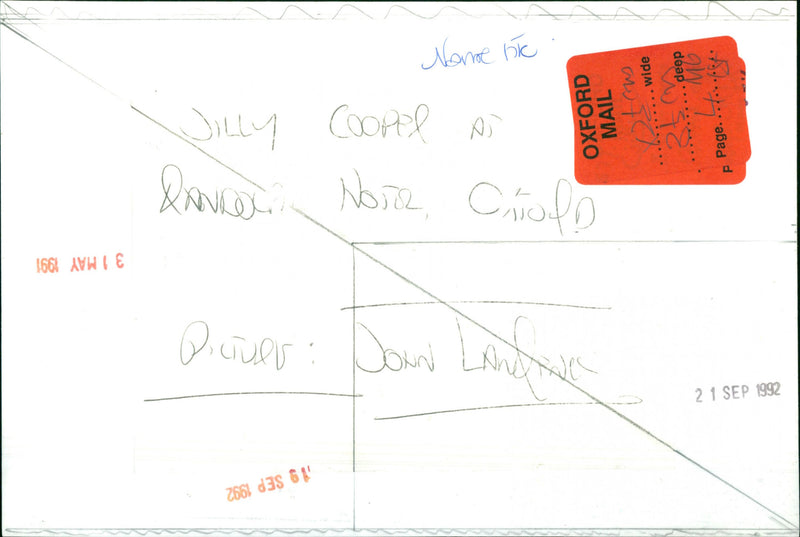 Name
OXFORD
MAIL
wide
deep
Page 4
JILLY COOPER AT
RANDOLPH HOTEL, OXFORD
31 MAY 1991
PICTURE: JOHN
21 SEP 1992
19 SEP 1992